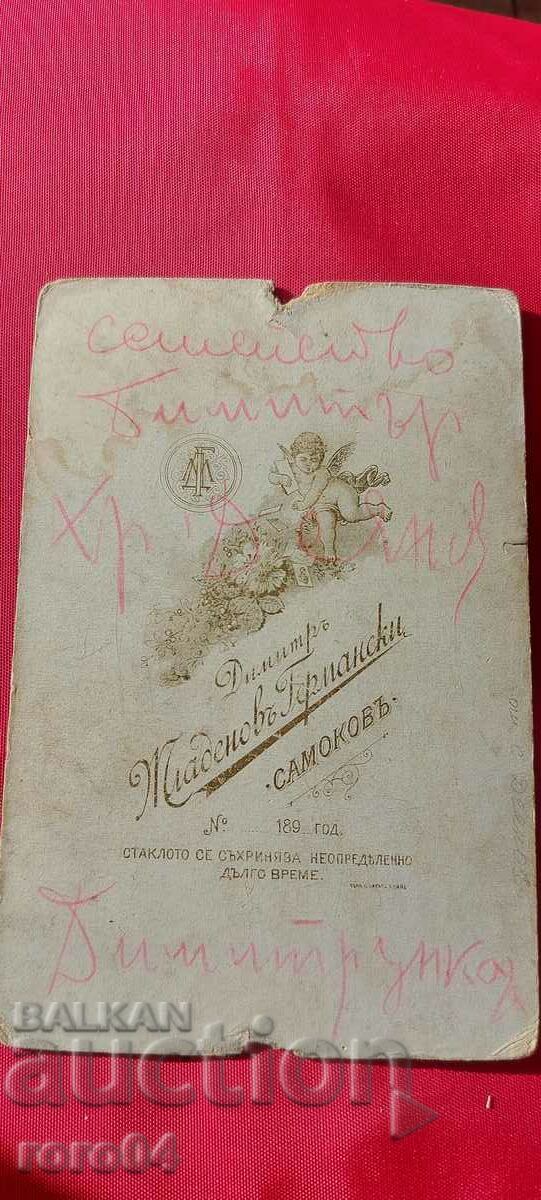 семейство
Димитър
Хр Даянов
Димитръ
Младеновъ Германски
·САМОКОВЪ·
№ ...... 189 год.
СТАКЛОТО СЕ СЪХРИНЯВА НЕОПРЕДѢЛЕННО
ДЪЛГО ВРЕМЕ.
Димитрушка
BALKAN
auction
roro04